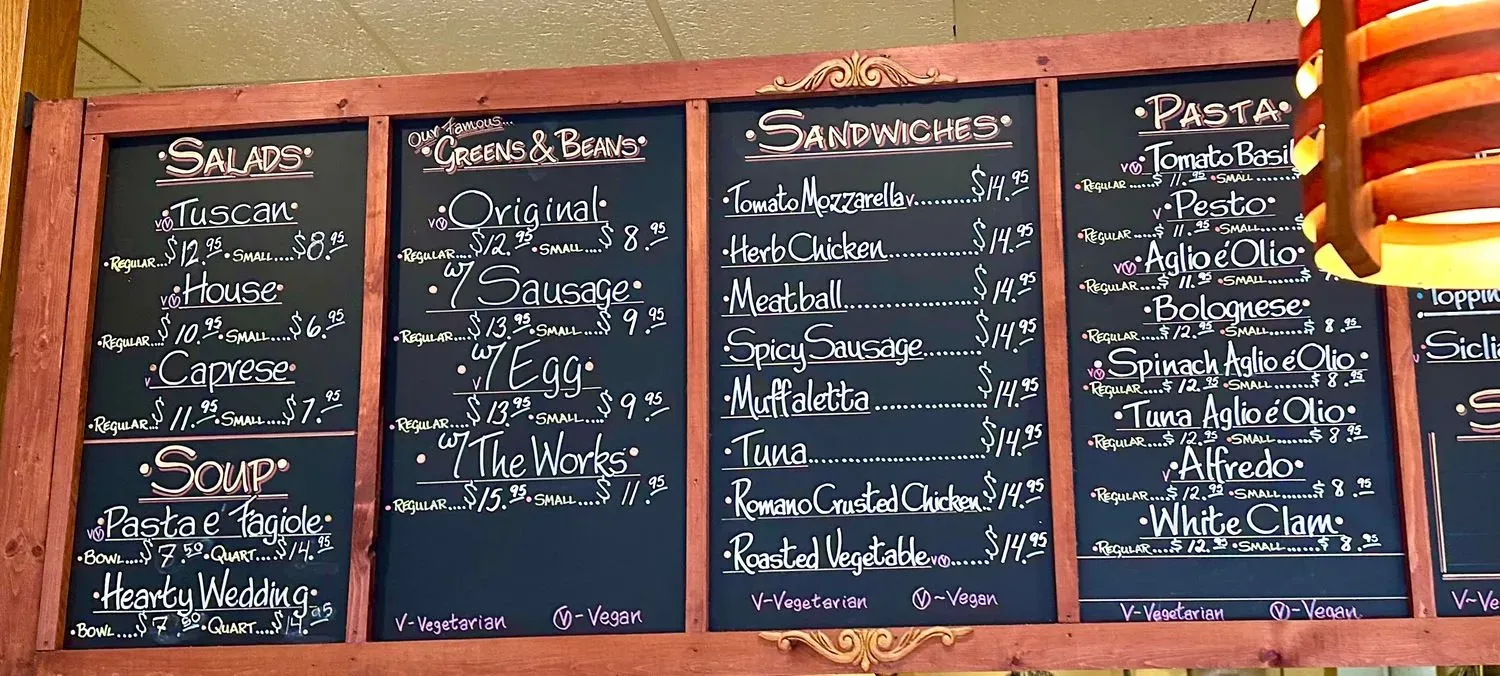 •SALADS•
V Ⓥ•Tuscan•
•REGULAR...$12.95•SMALL....$8.95
V Ⓥ•House•
•REGULAR...$10.95•SMALL....$6.95
V•Caprese•
•REGULAR....$11.95•SMALL....$7.95
•SOUP•
V Ⓥ•Pasta e Fagiole•
•BOWL....$7.50•QUART....$14.95
•Hearty Wedding•
•BOWL....$7.50•QUART....$14.95
OUR FAMOUS...
•GREENS & BEANS•
V Ⓥ•Original•
•REGULAR....$12.95•SMALL....$8.95
•w/Sausage•
•REGULAR....$13.95•SMALL....$9.95
•w/Egg•
•REGULAR....$13.95•SMALL....$9.95
•w/The Works•
•REGULAR....$15.95•SMALL....$11.95
V-Vegetarian Ⓥ-Vegan
•SANDWICHES•
•Tomato Mozzarella V..........$14.95
•Herb Chicken..............$14.95
•Meatball....................$14.95
•Spicy Sausage........$14.95
•Muffaletta................$14.95
•Tuna.........................$14.95
•Romano Crusted Chicken..$14.95
•Roasted Vegetable V Ⓥ......$14.95
V-Vegetarian Ⓥ-Vegan
•PASTA•
V Ⓥ•Tomato Basil
•REGULAR.....$11.95•SMALL......
V•Pesto•
•REGULAR.....$11.95•SMALL......$
V Ⓥ•Aglio é Olio•
•REGULAR.....$11.95•SMALL......
•Bolognese•
•REGULAR.....$12.95•SMALL.......$8.95
V Ⓥ•Spinach Aglio é Olio•
•REGULAR.....$12.95•SMALL.......$8.95
•Tuna Aglio é Olio•
•REGULAR.....$12.95•SMALL.......$8.95
V•Alfredo•
•REGULAR.....$12.95•SMALL.......$8.95
•White Clam•
•REGULAR.....$12.95•SMALL.......$8.95
V-Vegetarian Ⓥ-Vegan